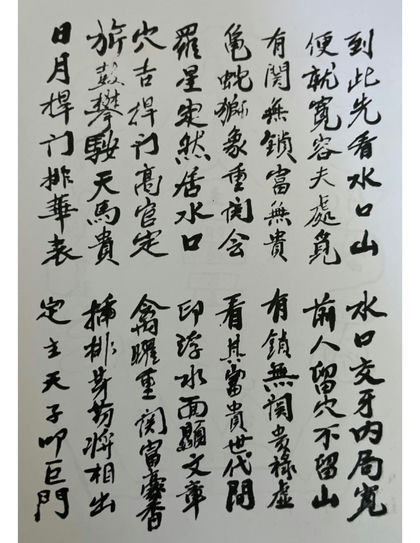 到此先看水口山
水口交牙内局寬
便就寬容夫處覓
前人留穴不留山
有関無鎖富無貴
有鎖無関貴祿虛
龜蛇獅象重関会
看其富貴世代間
羅星定然居水口
印浮水面顯文章
穴吉捍门高官定
禽曜重関富豪香
旂鼓攀鞍天馬貴
插排牙笏將相出
日月捍门排華表
定主天子叩巨門